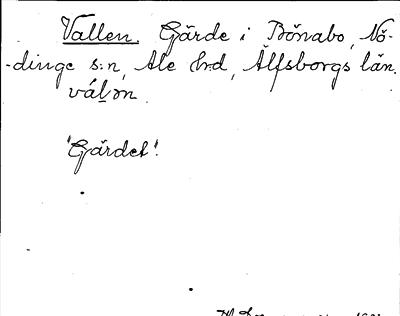 Vallen. Gärde i Bönabo, Nö-
-dinge s:n, Ale hrd, Älfsborgs län.
vál̠ən
"Gärdet".